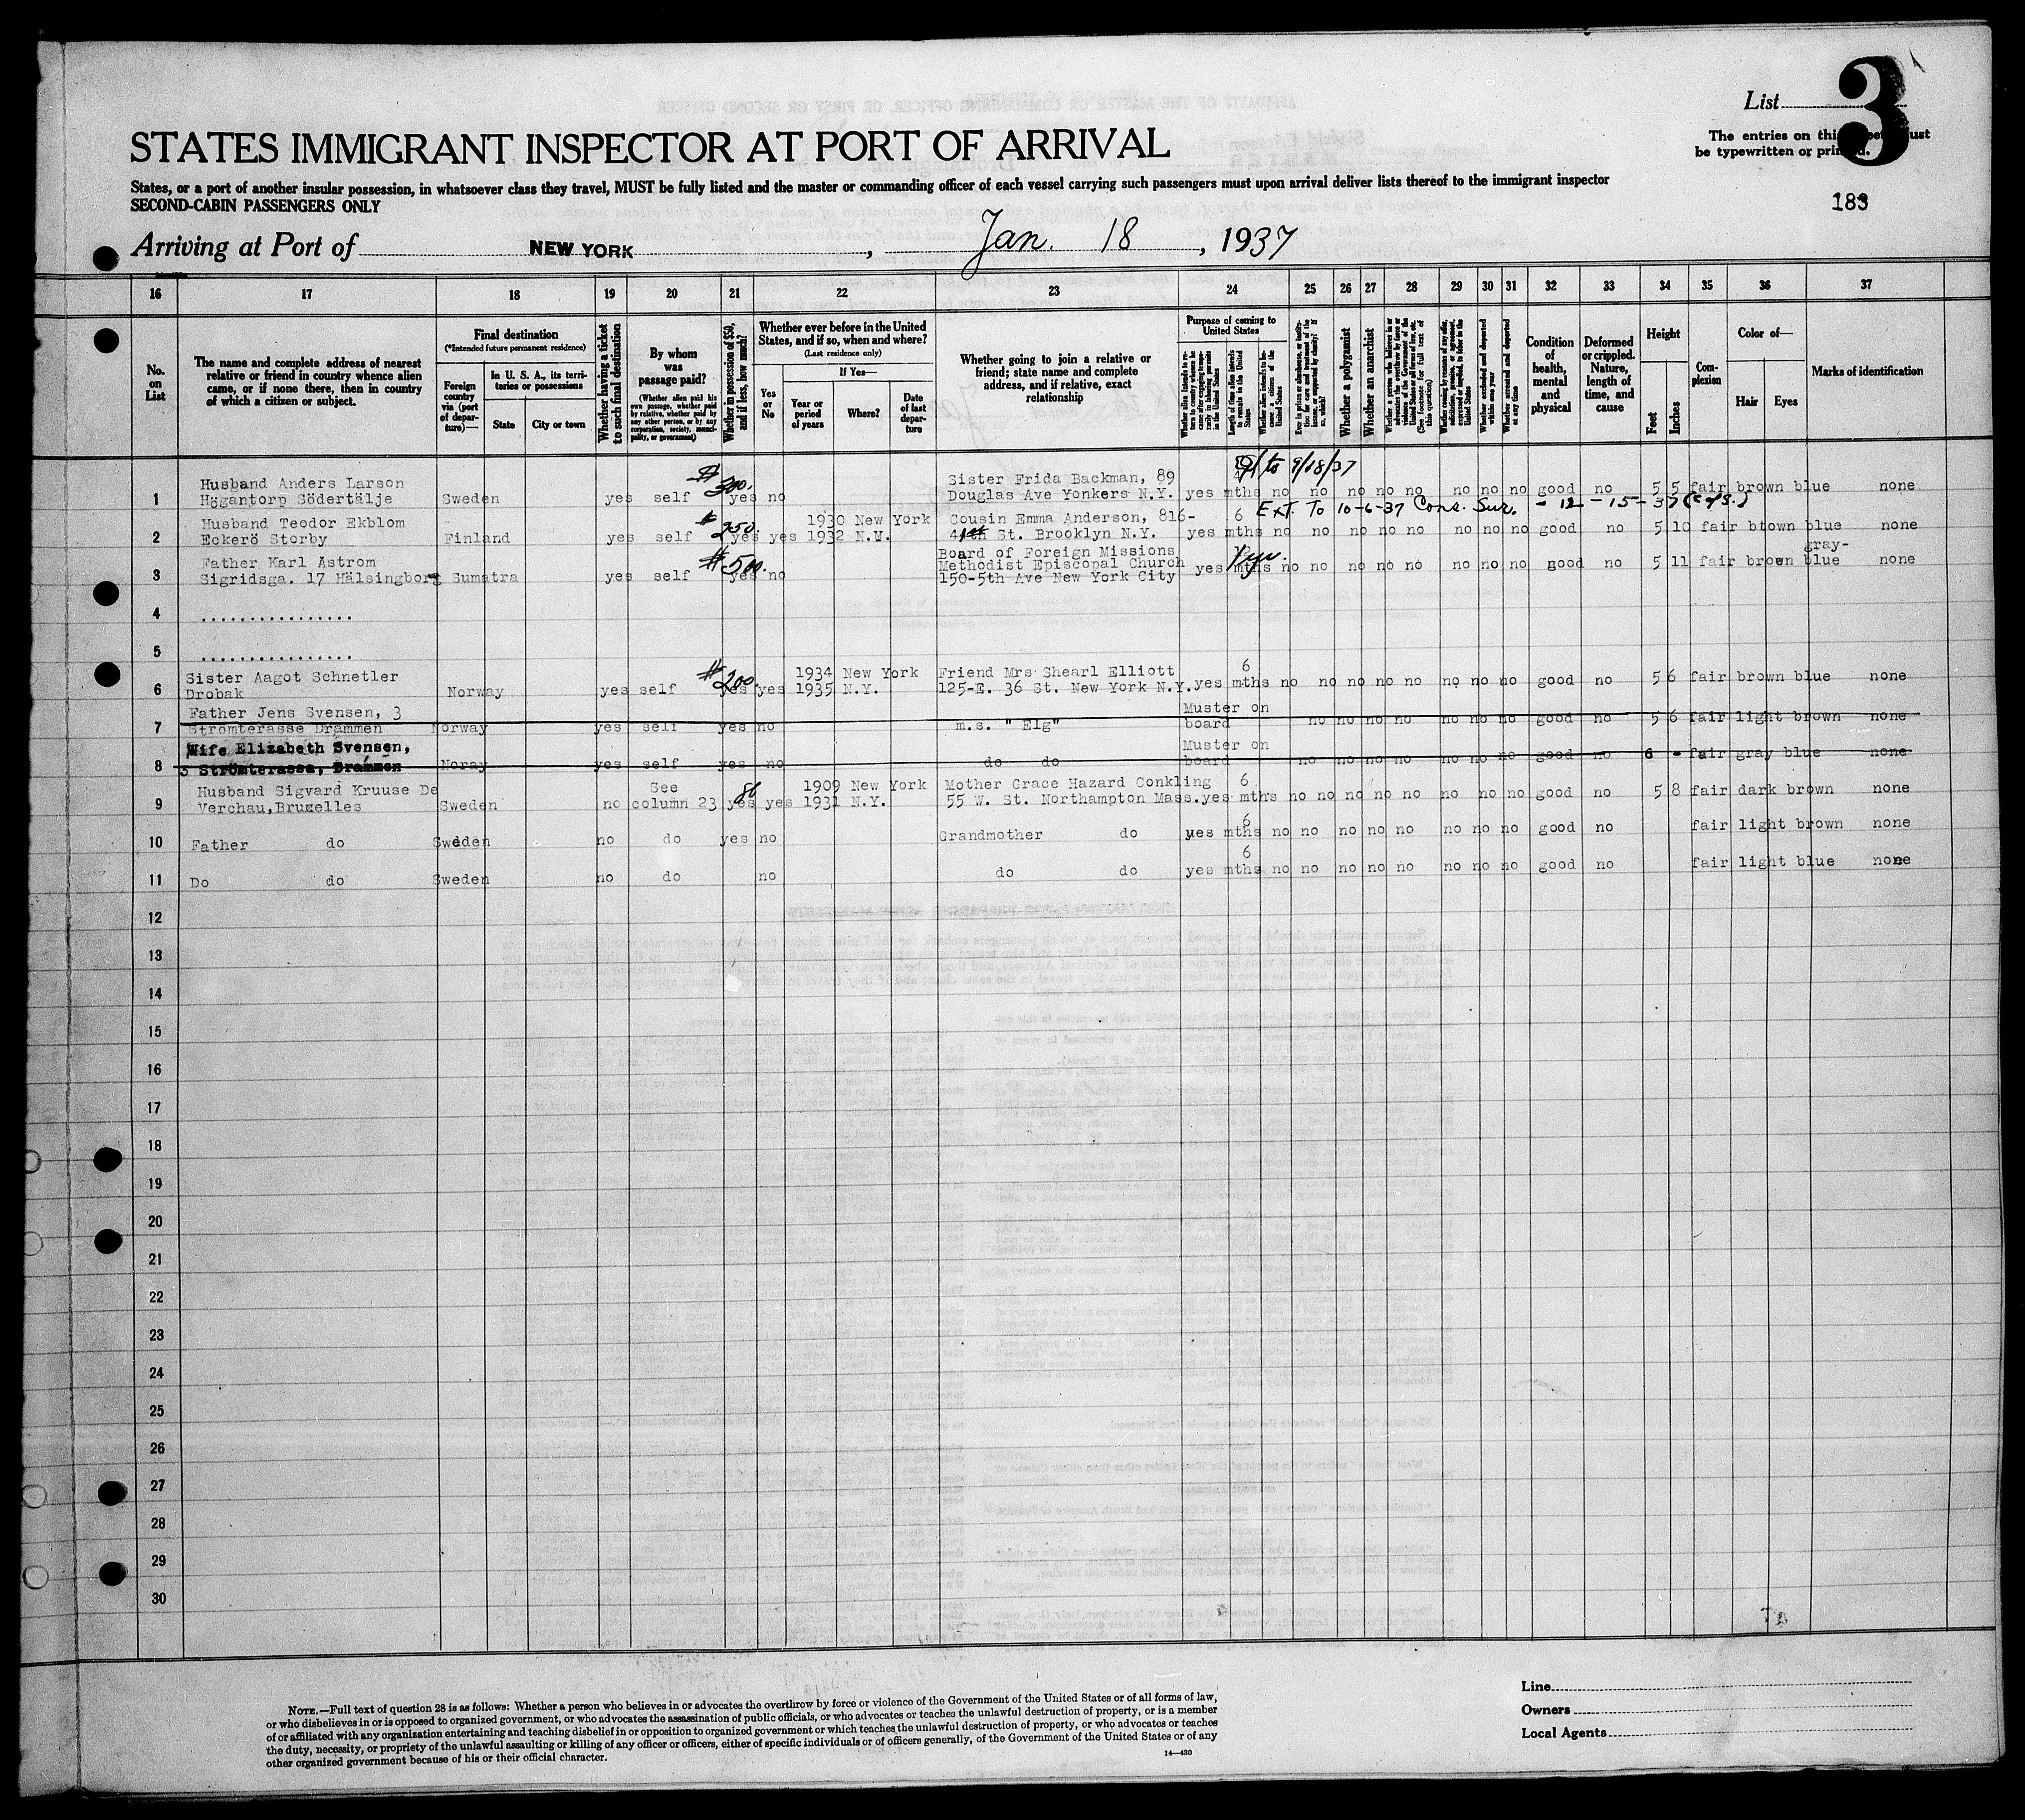 List 3
STATES IMMIGRANT INSPECTOR AT PORT OF ARRIVAL
The entries on this sheet must
be typewritten or printed.
States, or a port of another insular possession, in whatsoever class they travel, MUST be fully listed and the master or commanding officer of each vessel carrying such passengers must upon arrival deliver lists thereof to the immigrant inspector
SECOND-CABIN PASSENGERS ONLY
183
Arriving at Port of NEW YORK, Jan. 18, 1937
16 17 18 19 20 21 22 23 24 25 26 27 28 29 30 31 32 33 34 35 36 37
No. on List
The name and complete address of nearest relative or friend in country whence alien came, or if none there, then in country of which a citizen or subject.
Final destination
(*Intended future permanent residence)
Foreign country via (port of departure)—
In U. S. A., its territories or possessions
State
City or town
Whether having a ticket to such final destination
By whom was passage paid?
(Whether alien paid his own passage, whether paid by relative, whether paid by any other person, or by any corporation, society, municipality, or government)
Whether in possession of $50, and if less, how much?
Whether ever before in the United States, and if so, when and where?
(Last residence only)
Yes or No
If Yes—
Year or period of years
Where?
Date of last departure
Whether going to join a relative or friend; state name and complete address, and if relative, exact relationship
Purpose of coming to United States
Whether alien intends to return to country whence he came after engaging temporarily in laboring pursuits in the United States
Length of time alien intends to remain in the United States
Whether alien intends to become a citizen of the United States
Ever in prison or almshouse, or institution for care and treatment of the insane, or supported by charity? If so, which?
Whether a polygamist
Whether an anarchist
(See footnote for full text of this question)
Whether excluded and deported within one year
Whether arrested and deported at any time
Condition of health, mental and physical
Deformed or crippled. Nature, length of time, and cause
Height
Feet
Inches
Complexion
Color of—
Hair
Eyes
Marks of identification
$ to 9/18/37
Husband Anders Larson 300. Sister Frida Backman, 89
1 Högantorp Södertälje Sweden yes self yes no Douglas Ave Yonkers N.Y. yes mths no no no no no no no no good no 5 5 fair brown blue none
Ext. To 10-6-37 Cons. Sur. - 12-15-37
Husband Teodor Ekblom $250. 1930 New York Cousin Emma Anderson, 816- 6
2 Eckerö Storby Finland yes self yes yes 1932 N.Y. 41th St. Brooklyn N.Y. yes mths no no no no no no no no good no 5 10 fair btown blue none
Father Karl Åstrom $500. Board of Foreign Missions 1 yr. gray-
Methodist Episcopal Church
3 Sigridsga. 17 Hälsingborg Sumatra yes self yes no 150-5th Ave New York City yes mths no no no no no no no no good no 5 11 fair brown blue none
4 ................
5 ................
Sister Aagot Schnetler $200. 1934 New York Friend Mrs Shearl Elliott 6
6 Drobak Norway yes self yes yes 1935 N.Y. 125-E. 36 St. New York N.Y. yes mths no no no no no no no no good no 5 6 fair brown blue none
Father Jens Svensen, 3 Muster on
7 Strömterasse Drammen Norway yes self yes no m.s. " Elg" board no no no no no no no good no 5 6 fair light brown none
Wife Elizabeth Svensen, Muster on
8 3 Strömterassa, Drammen Noray yes self yes no do do board no no no no no no no good no 6 - fair gray blue none
Husband Sigvard Kruuse De See 80 1909 New York Mother Grace Hazard Conkling 6
9 Verchau,Bruxelles Sweden no column 23 yes yes 1931 N.Y. 55 W. St. Northampton Mass. yes mths no no no no no no no no good no 5 8 fair dark brown none
6
10 Father do Sweden no do yes no Grandmother do yes mths no no no no no no no no good no fair light brown none
6
11 Do do Sweden no do no do do yes mths no no no no no no no no good no fair light blue none
12
13
14
15
16
17
18
19
20
21
22
23
24
25
26
27
28
29
30
NOTE.—Full text of question 28 is as follows: Whether a person who believes in or advocates the overthrow by force or violence of the Government of the United States or of all forms of law,
or who disbelieves in or is opposed to organized government, or who advocates the assassination of public officials, or who advocates or teaches the unlawful destruction of property, or is a member
of or affiliated with any organization entertaining and teaching disbelief in or opposition to organized government or which teaches the unlawful destruction of property, or who advocates or teaches
the duty, necessity, or propriety of the unlawful assaulting or killing of any officer or officers, either of specific individuals or of officers generally, of the Government of the United States or of any
other organized government because of his or their official character.
14—430
Line
Owners
Local Agents